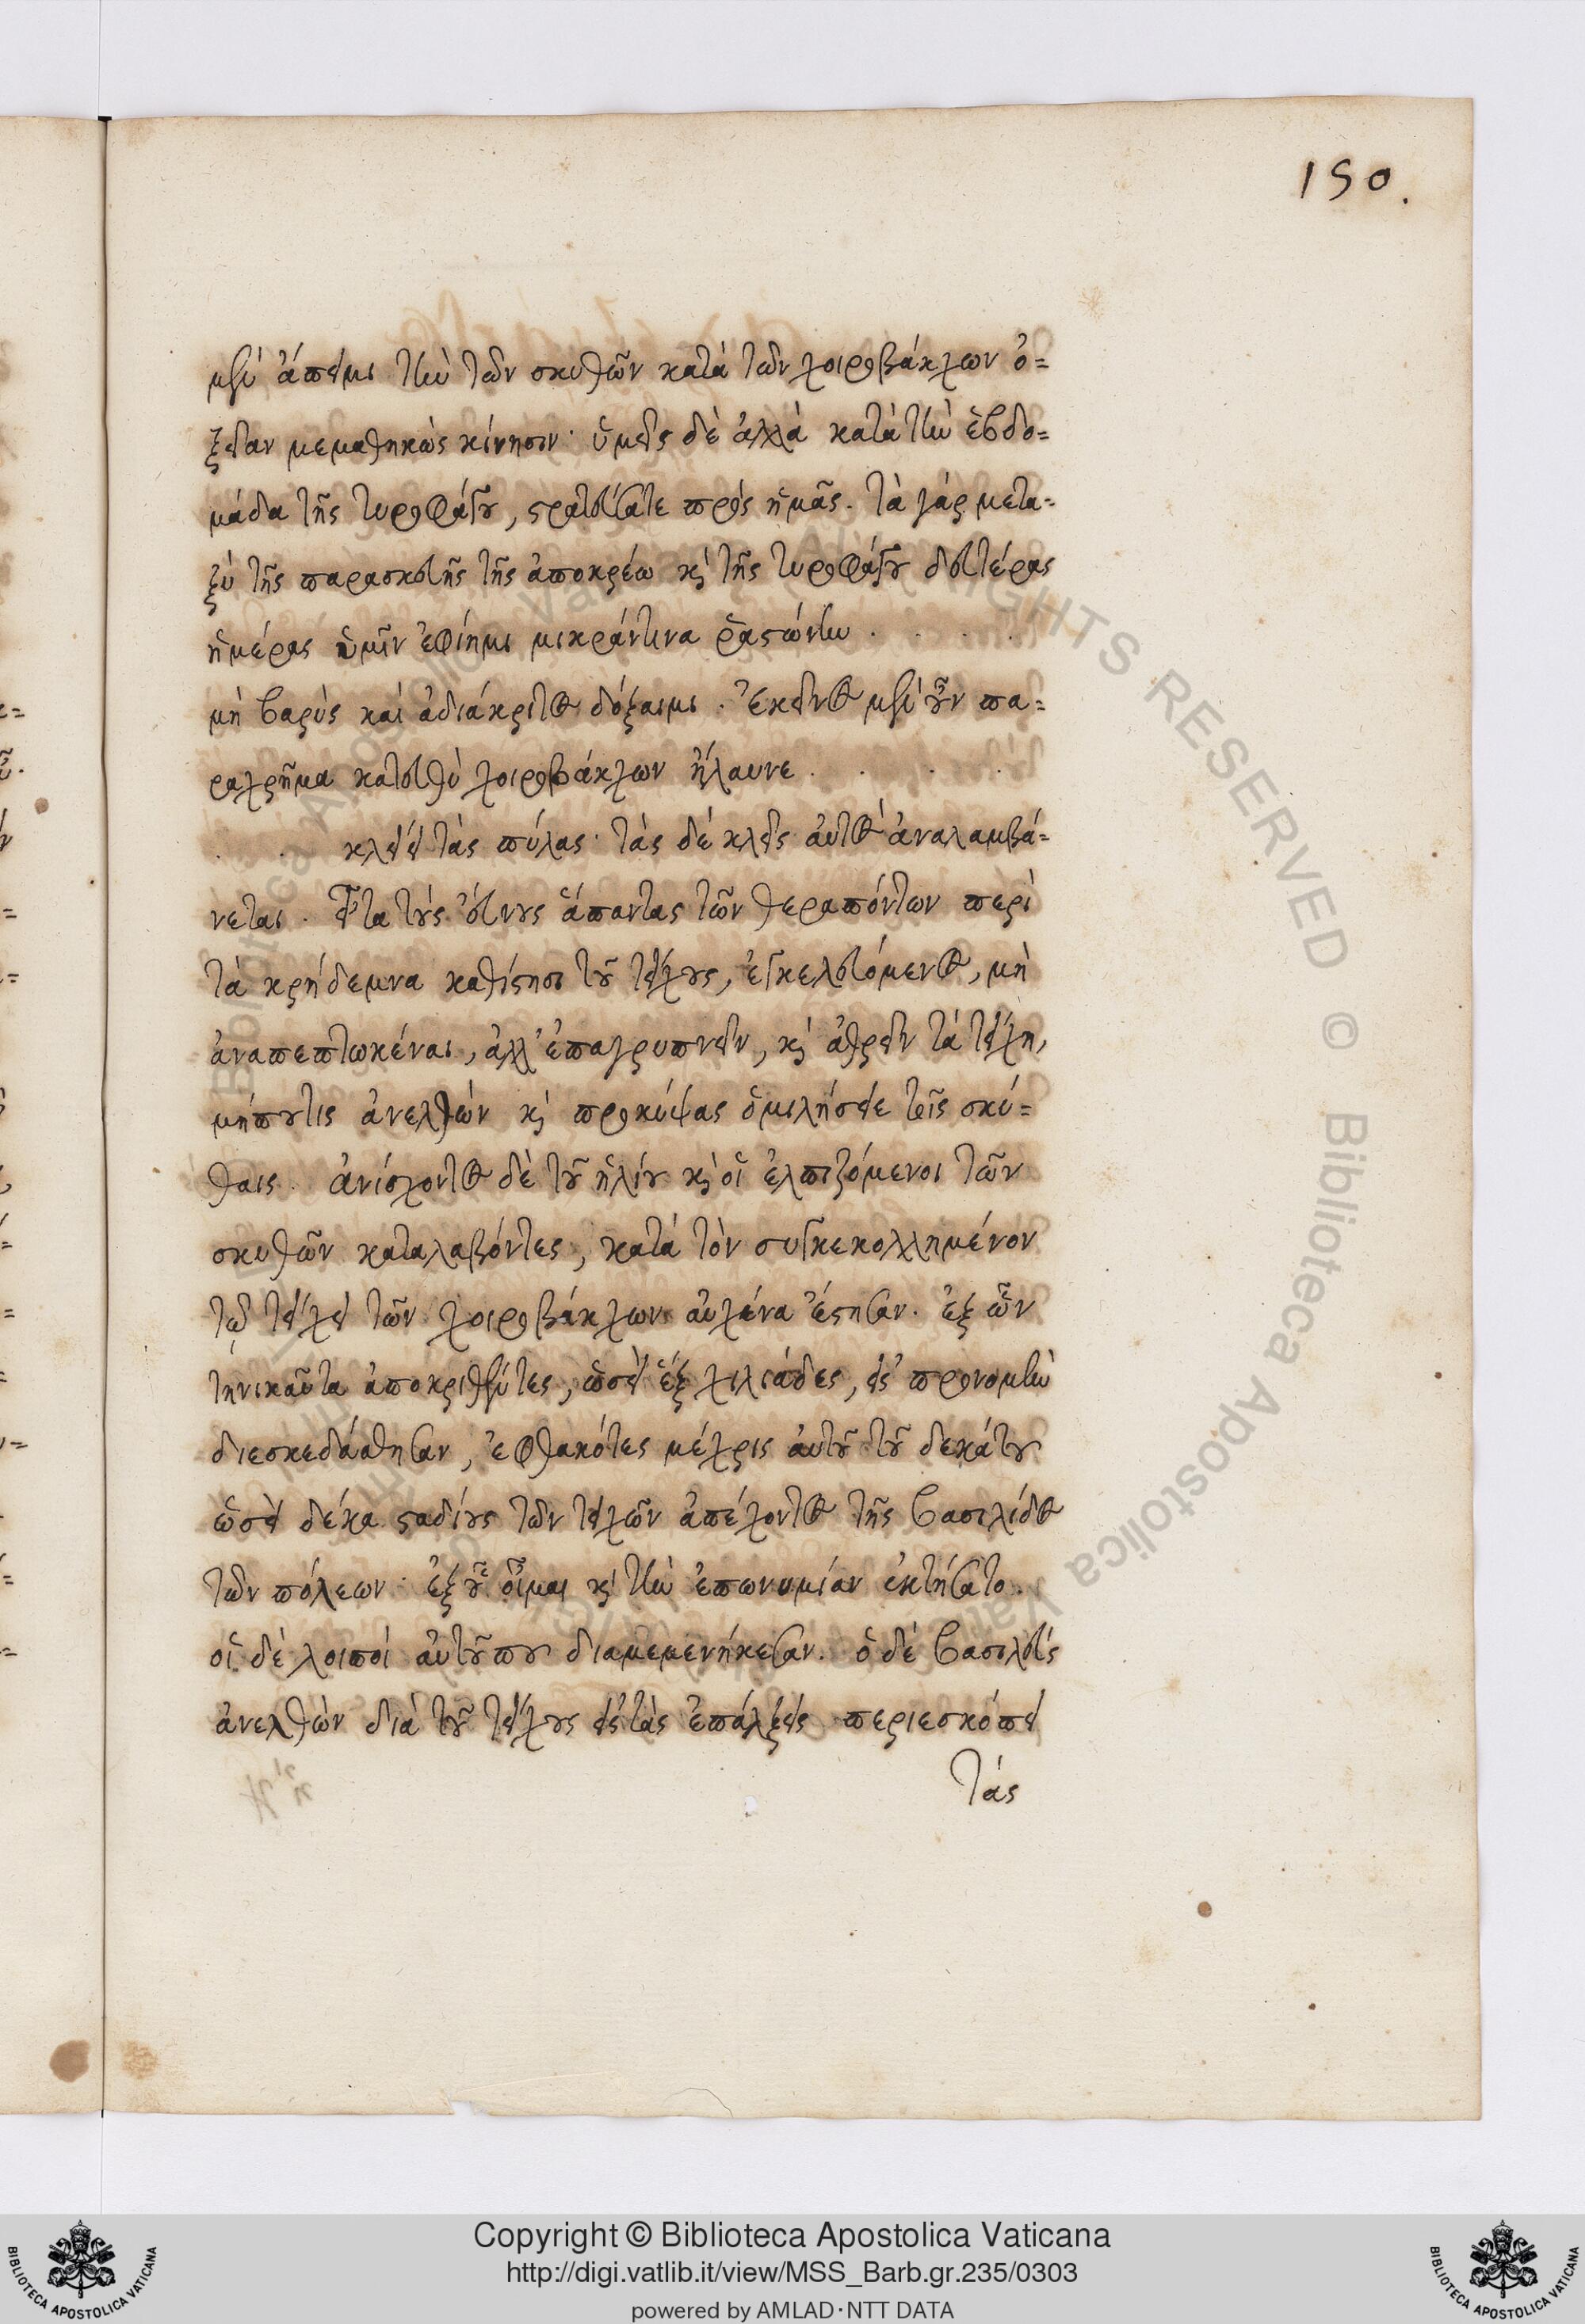 150.
μὲν ἄπειμι τὴν τῶν σκυθῶν κατὰ τῶν χοιροβάκχων ὀ=
ξεῖαν μεμαθηκὼς κίνησιν· ὑμεῖς δὲ ἀλλὰ κατὰ τὴν ἑβδο=
μάδα τῆς τυροφάγου, στρατεύσατε πρὸς ἡμᾶς. τὰ γάρ μετα=
ξύ τῆς παρασκευῆς τῆς ἀποκρέω κὶ τῆς τυροφάγου δευτέρας
ἡμέρας ὑμῖν ἐφίημι μικράν τινα ῥαστώνην . . . .
μὴ βαρύς καί ἀδιάκριτος δόξαιμι. Ἐκεῖνος μὲν οὖν πα=
ραχρῆμα κατευθὺ χοιροβάκχων ἤλαυνε . . . .
. . κλείει τὰς πύλας· τάς δέ κλεῖς αὐτός ἀναλαμβά=
νεται. Εἶτα τοὺς εὔνους ἅπαντας τῶν θεραπόντων περὶ
τὰ κρήδεμνα καθίστησι τοῦ τείχους, ἐγκελευόμενος, μὴ
ἀναπεπτωκέναι, ἀλλ' ἐπαγρυπνεῖν, κὶ ἀθρεῖν τὰ τείχη,
μήπου τις ἀνελθών κὶ προκύψας ὁμιλήσειε τοῖς σκύ=
θαις. ἀνίσχοντος δὲ τοῦ ἡλίου κὶ οἱ ἐλπιζόμενοι τῶν
σκυθῶν καταλαβόντες, κατά τὸν συγκεκολλημένον
τῷ τείχει τῶν χοιροβάκχων αὐχένα ἔστησαν. ἐξ ὧν
τηνικαῦτα ἀποκριθέντες, ὡσεί ἕξ χιλιάδες, εἰς προνομὴν
διεσκεδάσθησαν, ἐφθακότες μέχρις αὐτοῦ τοῦ δεκάτου
ὡσεὶ δέκα σταδίους τῶν τειχῶν ἀπέχοντος τῆς βασιλίδος
τῶν πόλεων· ἐξ οὗ οἶμαι κὶ τὴν ἐπωνυμίαν ἐκτήσατο.
οἱ δὲ λοιποί αὐτοῦ που διαμεμενήκεσαν. ὁ δὲ βασιλεύς
ἀνελθὼν διά τοῦ τείχους εἰς τὰς ἐπάλξεις περιεσκόπει
τάς
Copyright © Biblioteca Apostolica Vaticana
http://digi.vatlib.it/view/MSS_Barb.gr.235/0303
powered by AMLAD·NTT DATA